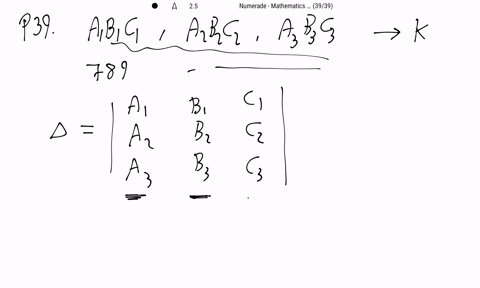 Δ 2.5 Numerade - Mathematics ... (39/39)
P39. A₁B₁C₁ , A₂B₂C₂ , A₃B₃C₃ → K
789 -
Δ = | A₁ B₁ C₁ |
| A₂ B₂ C₂ |
| A₃ B₃ C₃ |